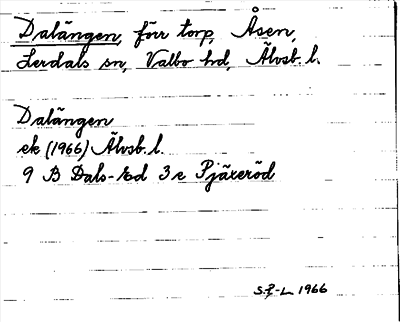 Dalängen, förr torp, Åsen,
Lerdals sn, Valbo hd, Älvsb. l.
Dalängen
ek (1966) Älvsb. l.
9 B Dals-Ed 3 e Pjäxeröd
1966